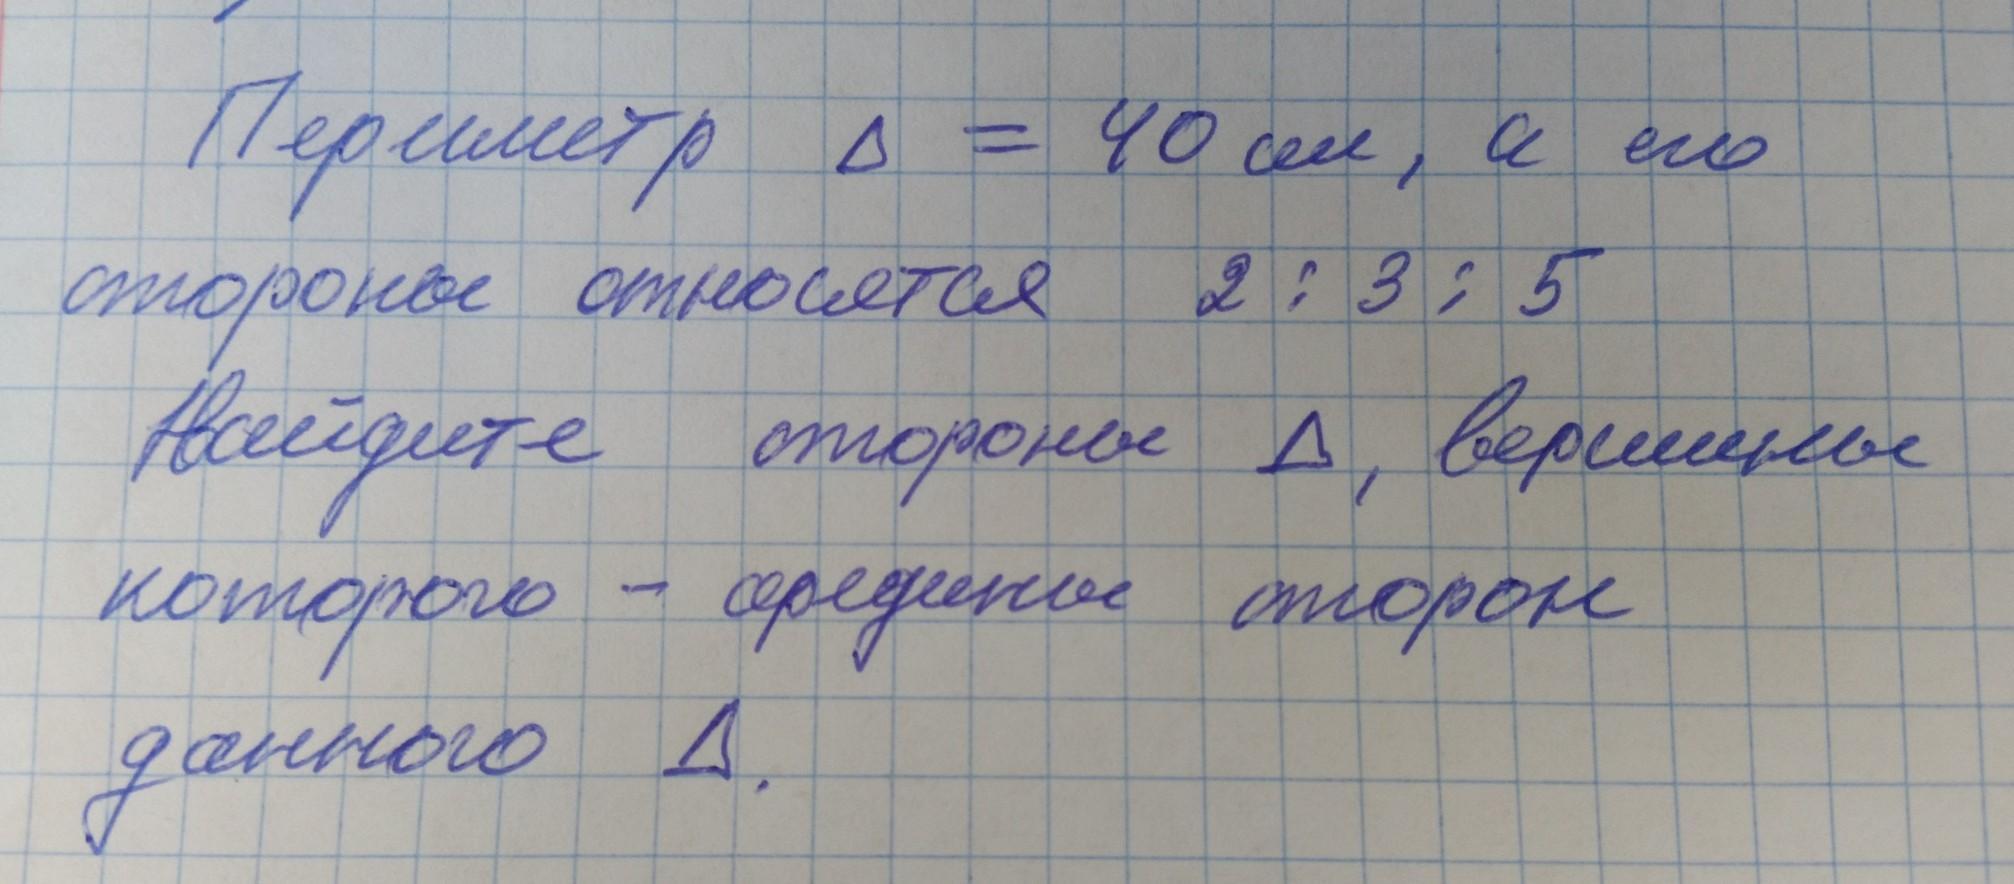 Периметр Δ = 40 см, а его
стороны относятся 2 : 3 : 5
Найдите стороны Δ, вершины
которого - середины сторон
данного Δ.